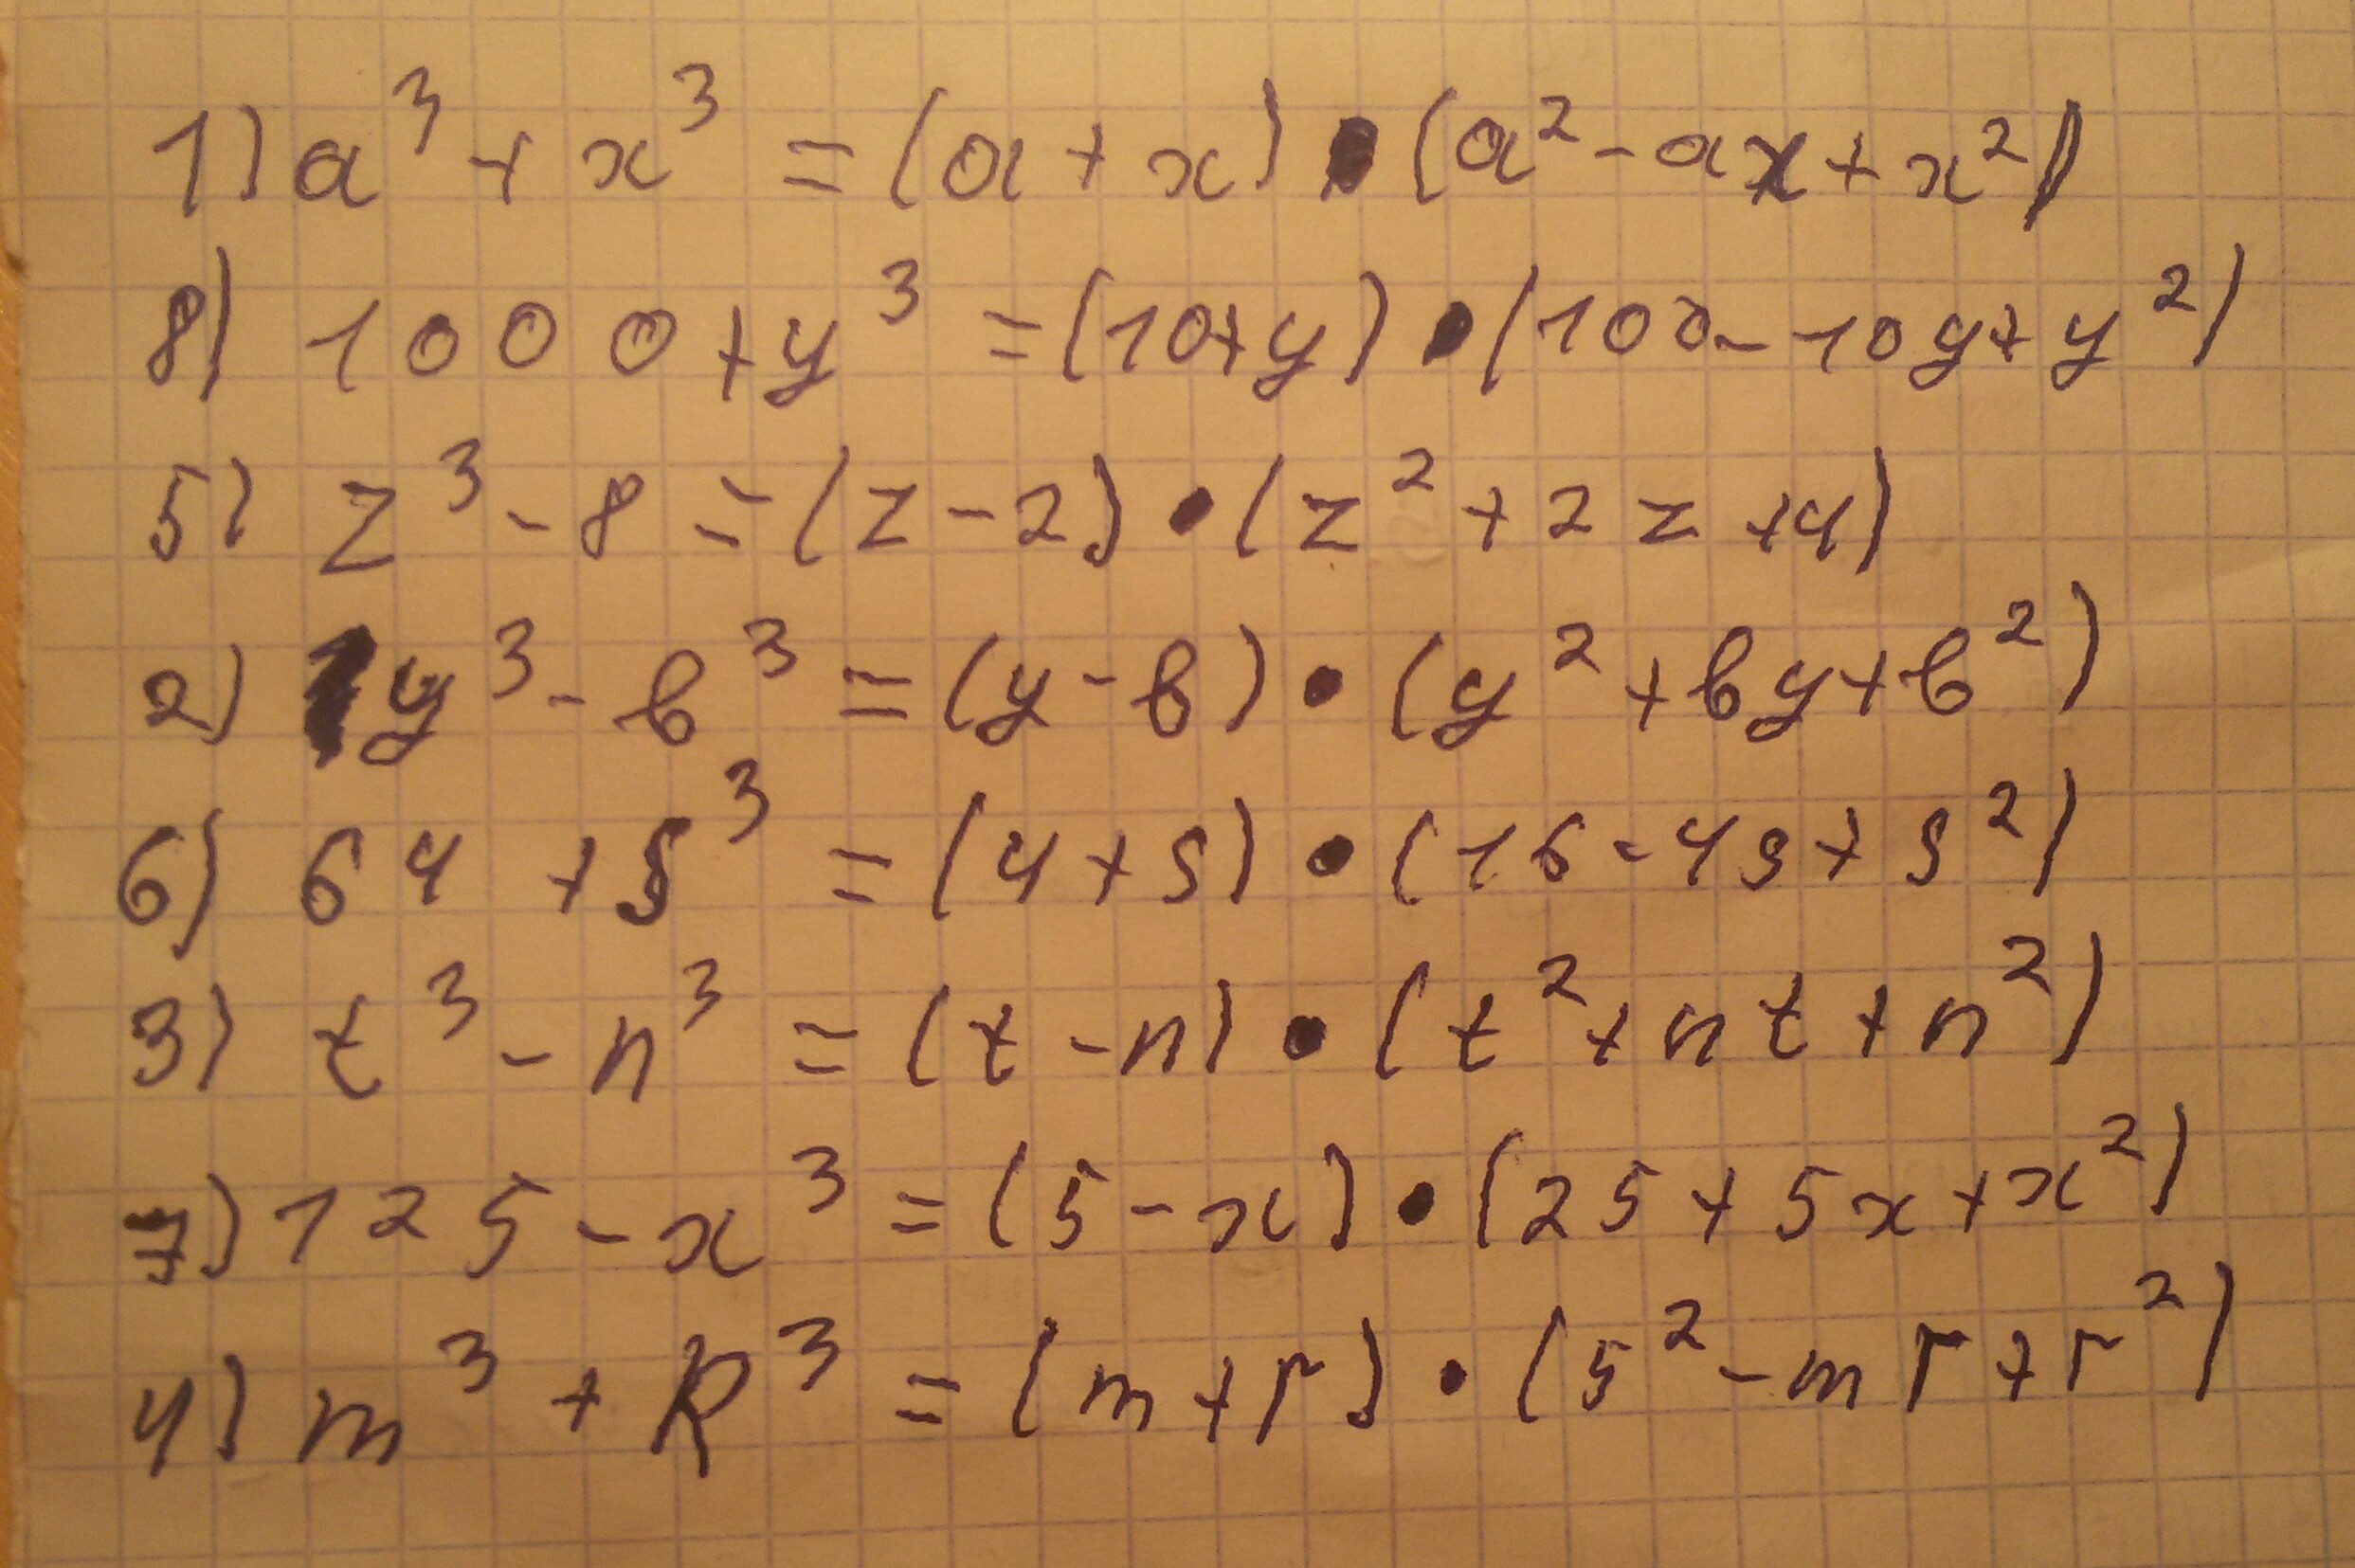 1) a³ + x³ = (a + x) • (a² - ax + x²)
8) 1000 + y³ = (10 + y) • (100 - 10y + y²)
5) z³ - 8 = (z - 2) • (z² + 2z + 4)
2) y³ - b³ = (y - b) • (y² + by + b²)
6) 64 + s³ = (4 + s) • (16 - 4s + s²)
3) t³ - n³ = (t - n) • (t² + nt + n²)
7) 125 - x³ = (5 - x) • (25 + 5x + x²)
4) m³ + R³ = (m + r) • (5² - mr + r²)